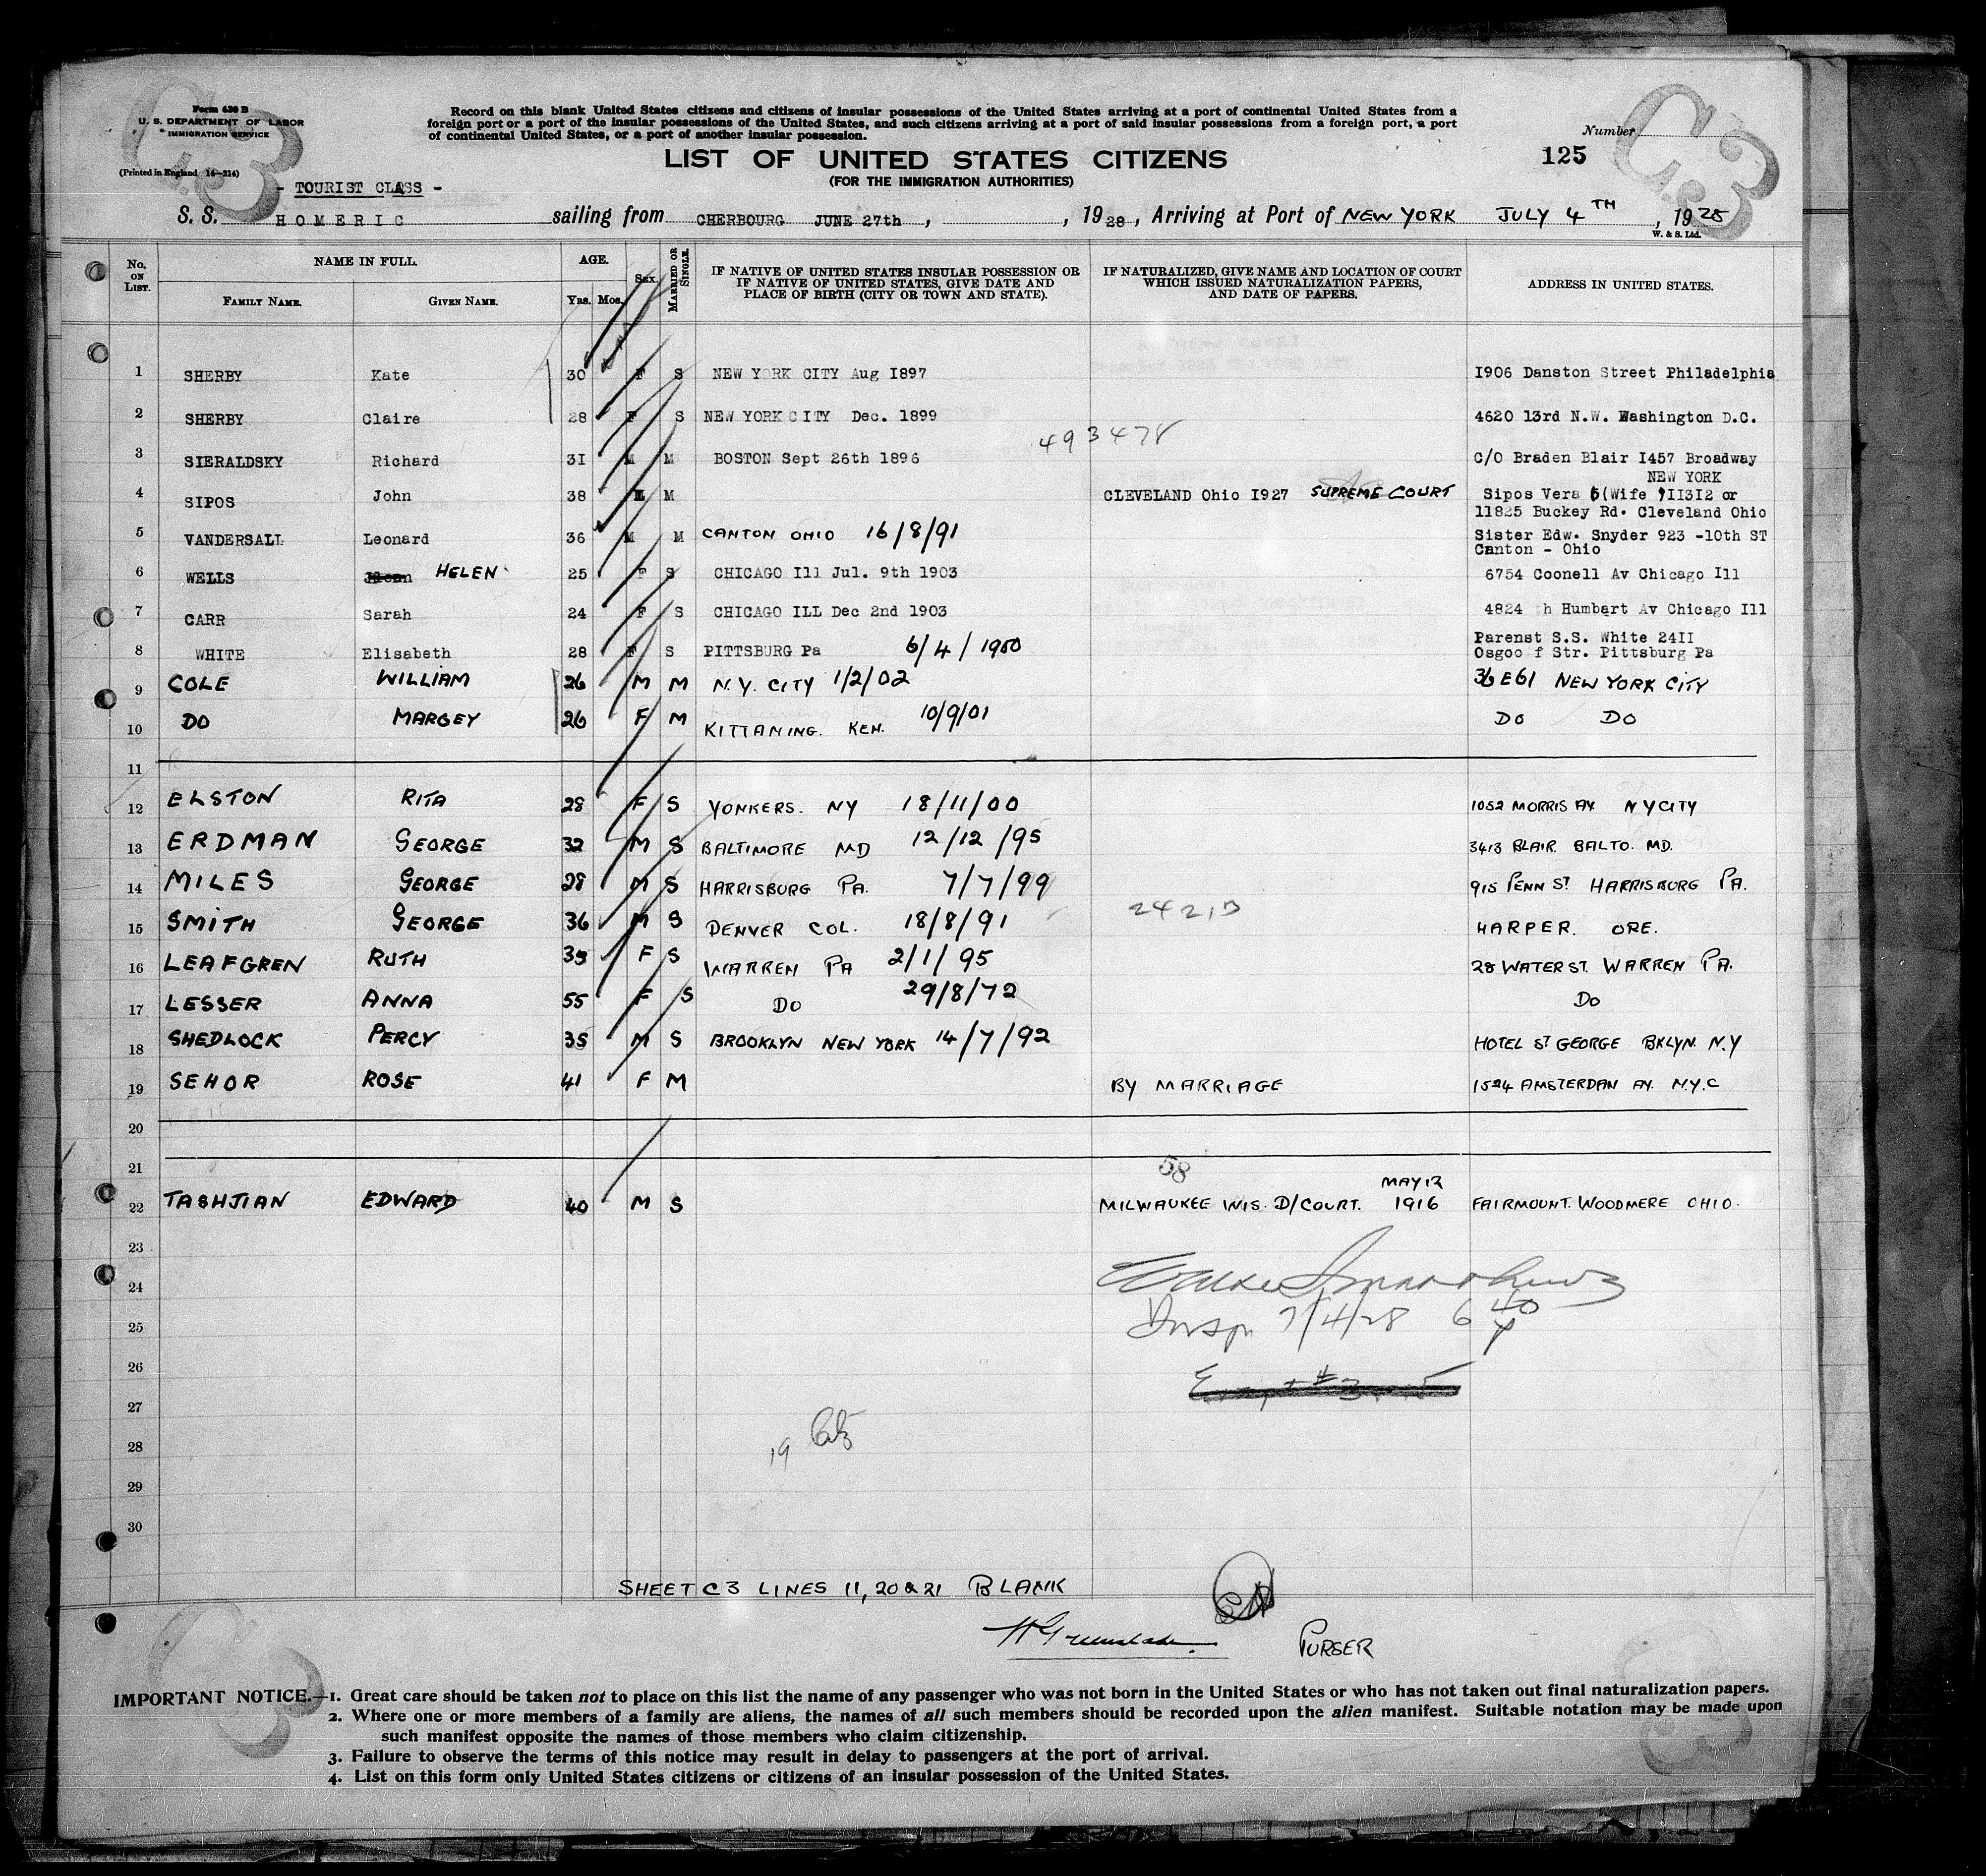 Form 630 B
U. S. DEPARTMENT OF LABOR
IMMIGRATION SERVICE
(Printed in England 14—214)
Record on this blank United States citizens and citizens of insular possessions of the United States arriving at a port of continental United States from a
foreign port or a port of the insular possessions of the United States, and such citizens arriving at a port of said insular possessions from a foreign port, a port
of continental United States, or a port of another insular possession.
LIST OF UNITED STATES CITIZENS
(FOR THE IMMIGRATION AUTHORITIES)
Number
125
C3
C3
- TOURIST CLASS -
S. S. HOMERIC sailing from CHERBOURG JUNE 27th, , 1928, Arriving at Port of NEW YORK JULY 4TH, 1928
W. & S. Ltd.
No. ON LIST. NAME IN FULL. AGE. Sex. MARRIED OR SINGLE. IF NATIVE OF UNITED STATES INSULAR POSSESSION OR IF NATIVE OF UNITED STATES, GIVE DATE AND PLACE OF BIRTH (CITY OR TOWN AND STATE). IF NATURALIZED, GIVE NAME AND LOCATION OF COURT WHICH ISSUED NATURALIZATION PAPERS, AND DATE OF PAPERS. ADDRESS IN UNITED STATES.
FAMILY NAME. GIVEN NAME. Yrs. Mos.
1 SHERBY Kate 30 F S NEW YORK CITY Aug I897 I906 Danston Street Philadelphia
2 SHERBY Claire 28 F S NEW YORK CITY Dec. 1899 4620 13rd N.W. Washington D.C.
493478
3 SIERALDSKY Richard 3I M M BOSTON Sept 26th 1896 C/O Braden Blair I457 Broadway
NEW YORK
4 SIPOS John 38 M CLEVELAND Ohio I927 SUPREME COURT Sipos Vera (Wife II3I2 or
11825 Buckey Rd. Cleveland Ohio
5 VANDERSALL Leonard 36 M M CANTON OHIO 16/8/91 Sister Edw. Snyder 923 -10th ST
Canton - Ohio
6 WELLS HELEN 25 F S CHICAGO Ill Jul. 9th 1903 6754 Coonell Av Chicago Ill
7 CARR Sarah 24 F S CHICAGO ILL Dec 2nd 1903 4824 h Humbart Av Chicago Ill
8 WHITE Elisabeth 28 F S PITTSBURG Pa 6/4/1900 Parenst S.S. White 24II
Osgoo f Str. Pittsburg Pa
9 COLE WILLIAM 26 M M N.Y. CITY 1/2/02 36 E 61 NEW YORK CITY
10 DO MARGEY 26 F M KITTANING. KEN. 10/9/01 DO DO
11
12 ELSTON RITA 28 F S YONKERS. NY 18/11/00 1052 MORRIS AV. N Y CITY
13 ERDMAN GEORGE 32 M S BALTIMORE MD 12/12/95 3413 BLAIR. BALTO. MD.
14 MILES GEORGE 28 M S HARRISBURG PA. 7/7/99 915 PENN ST HARRISBURG PA.
15 SMITH GEORGE 36 M S DENVER COL. 18/8/91 HARPER. ORE.
16 LEAFGREN RUTH 33 F S WARREN PA 2/1/95 28 WATER ST. WARREN PA.
17 LESSER ANNA 55 F S DO 29/8/72 DO
18 SHEDLOCK PERCY 35 M S BROOKLYN NEW YORK 14/7/92 HOTEL ST GEORGE BKLYN. N.Y
19 SEHOR ROSE 41 F M BY MARRIAGE 1524 AMSTERDAN AV. N.Y.C
20
21
58
22 TASHJIAN EDWARD 40 M S MILWAUKEE WIS. D/COURT. MAY 12 1916 FAIRMOUNT. WOODMERE OHIO.
23
24
25 Insp 7/4/28 6 40
26
27
28 19
29
30
SHEET C3 LINES 11, 20 & 21 BLANK
PURSER
IMPORTANT NOTICE.—1. Great care should be taken not to place on this list the name of any passenger who was not born in the United States or who has not taken out final naturalization papers.
2. Where one or more members of a family are aliens, the names of all such members should be recorded upon the alien manifest. Suitable notation may be made upon
such manifest opposite the names of those members who claim citizenship.
3. Failure to observe the terms of this notice may result in delay to passengers at the port of arrival.
4. List on this form only United States citizens or citizens of an insular possession of the United States.
C3
C3